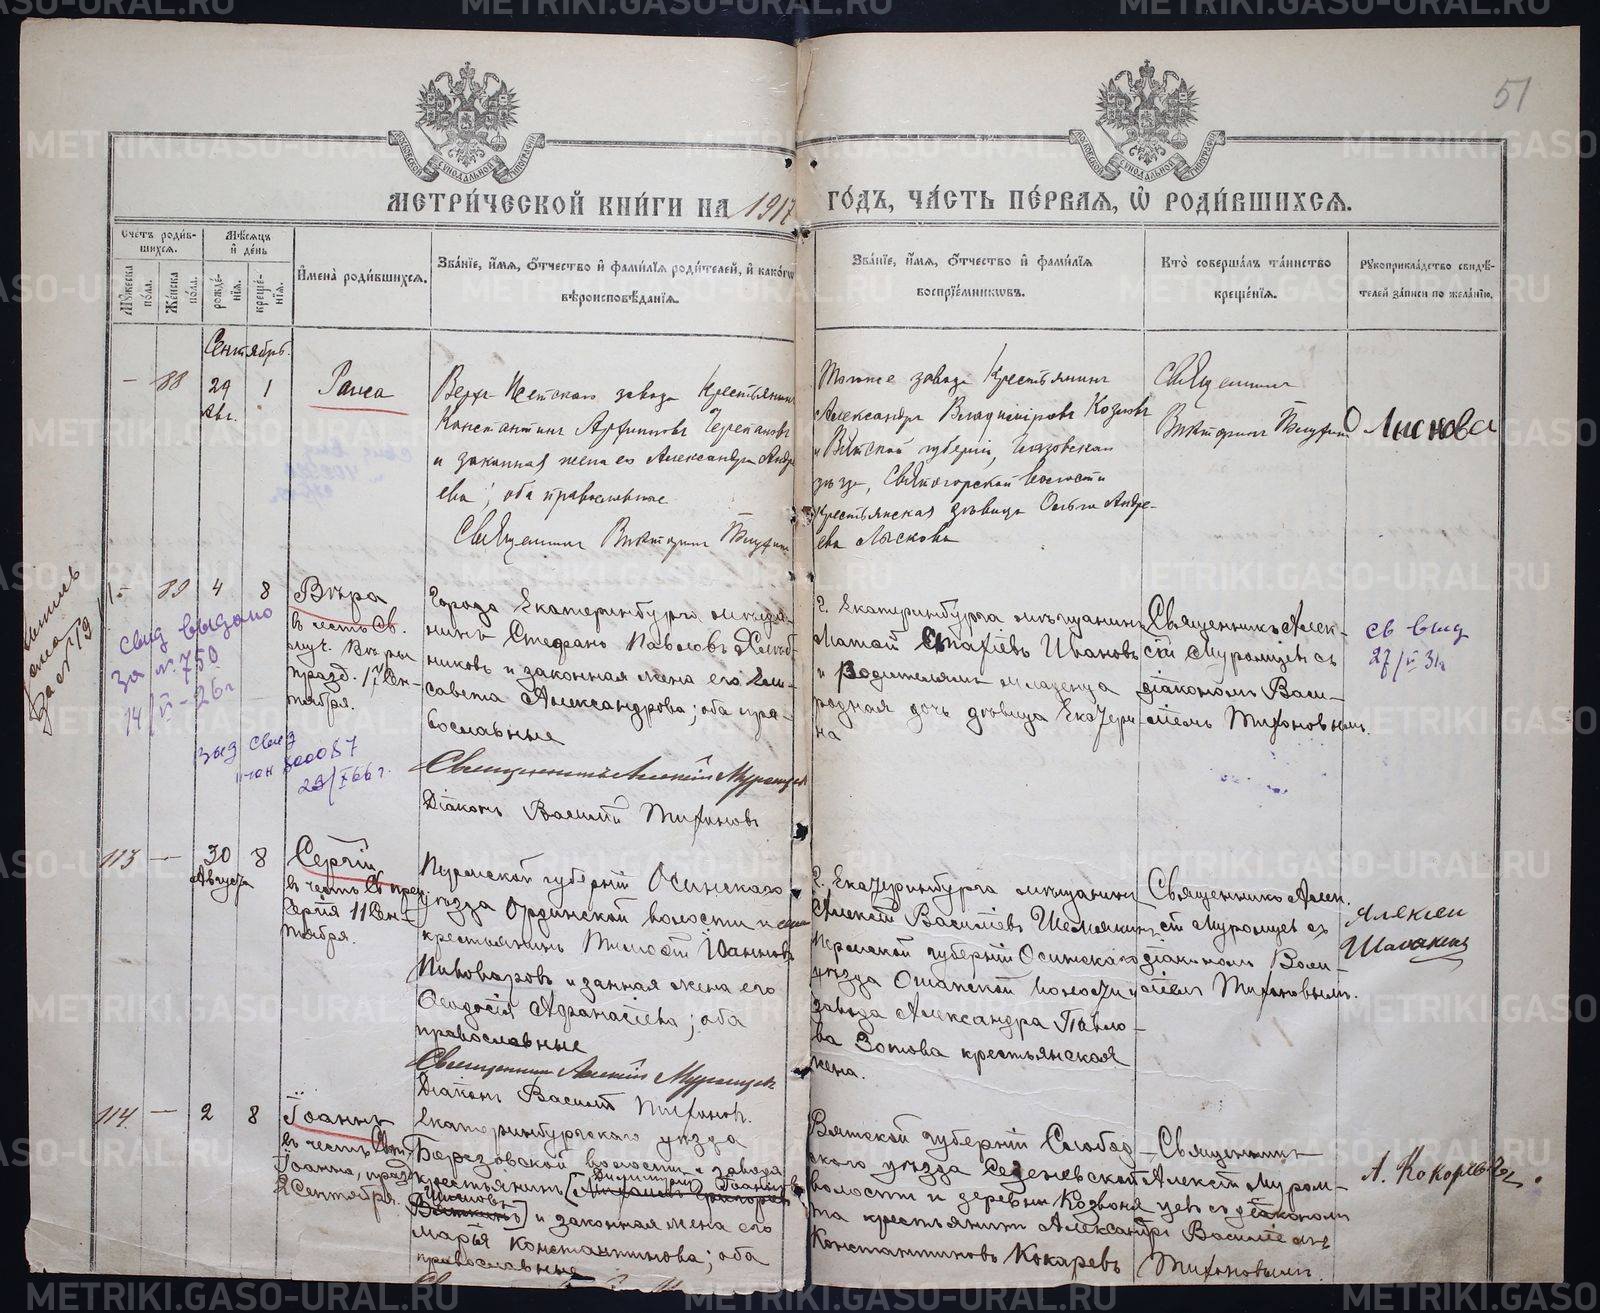 51
МЕТРИ́ЧЕСКОЙ КНИ́ГИ НА 1917 ГО́ДЪ, ЧА́СТЬ ПЕ́РВАЯ, Ѡ҆ РОДИ́ВШИХСЯ.
Сче́тъ роди́в-
шихся.
Мꙋ́жеска по́ла.
Же́нска по́ла.
Мѣ́сяцъ
и҆ де́нь
рожде́нїя.
креще́нїя.
И҆мена̀ роди́вшихся.
Зва́нїе, и҆́мя, ѻ҆́тчество и҆ фами́лїя роди́телей, и҆ како́гѡ
вѣроисповѣ́данїя.
Зва́нїе, и҆́мя, ѻ҆́тчество и҆ фами́лїя
воспрїе́мникѡвъ.
Кто̀ соверша́лъ та́инство
креще́нїя.
Рꙋкоприкла́дство свидѣ́-
телей за́писи по жела́нїю.
Сентябрь.
- 88 29 Авг. 1
Раиса
Верх-Исетскаго завода Крестьянинъ
Константинъ Архиповъ Черепановъ
и законная жена его Александра Андре
ева; оба православные
Священникъ Викторинъ
Тогоже завода Крестьянинъ
Александръ Владиміровъ Козловъ
и Вятской губерніи, Глазовскаго
уѣзда, Святогорской волости
крестьянская дѣвица Ольга Андре-
ева Лыскова
Священникъ
Викторинъ
О Лыскова
- 89 4 8
Вѣра
въ честь Св.
муч. Вѣры
празд. 17 Сен-
тября.
Города Екатеринбурга мѣща-
нинъ Стефанъ Павловъ
никовъ и законная жена его Ели-
савета Александрова; оба пра-
вославные
Священникъ Алексій Муромцев
Діаконъ Василій Тихоновъ
Г. Екатеринбурга мѣщанинъ
Матѳей Ивановъ
и родителямъ младенца
родная дочь дѣвица Екатери
на
Священникъ Алек-
сій Муромцевъ съ
діакономъ Васи-
ліемъ Тихоновымъ.
св выд
27/V 31г
свид выдано
за № 750
14/VI-26г
выд свид
800087
113 - 30 Августа 8
Сергій
въ честь Св. преп.
Сергія 11 Сен-
тября.
Пермской губерніи Осинскаго
уѣзда Ординской волости и села
крестьянинъ Тимоѳей Іоанновъ
Пивоваровъ и занная жена его
Ѳеодосія Аѳанасіева; оба
православные
Священникъ Алексій Муромцев
Діаконъ Василій Тихоновъ.
Г. Екатеринбурга мѣщанинъ
Алексій Василіевъ Шемякинъ
Пермской губерніи Осинскаго
уѣзда Ошапской волости и
завода Александра Павло-
ва Зотова крестьянская
жена.
Священникъ Алек-
сій Муромцев съ
діакономъ Васи-
ліемъ Тихоновымъ.
Алексеи
114. - 2 8
Іоаннъ
въ честь Свят.
Іоанна, празд.
2 Сентября.
Екатеринбургскаго уѣзда
Березовской волости и завода
крестьянинъ
и законная жена его
Марія Константинова; оба
православные
Вятской губерніи Слобод-
ского уѣзда Сезеневской
волости и деревни
крестьянинъ Александръ
Константиновъ Кокаревъ
Священникъ
Алексій Муром-
цевъ съ діакономъ
Василіемъ
Тихоновымъ.
METRIKI.GASO-URAL.RU